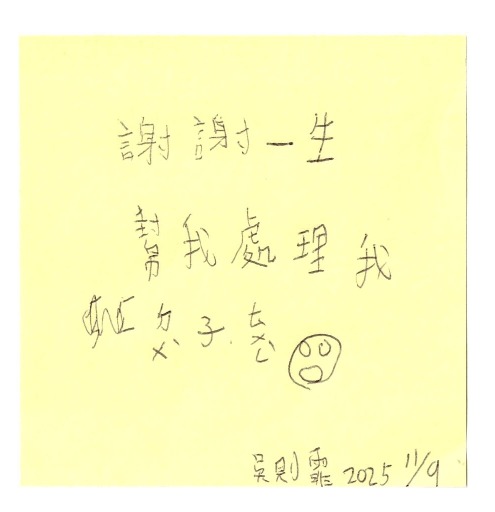 謝謝一生
幫我處理我
ㄉㄨˋ子ㄊㄨㄥ
吳則霏 2025 11/9